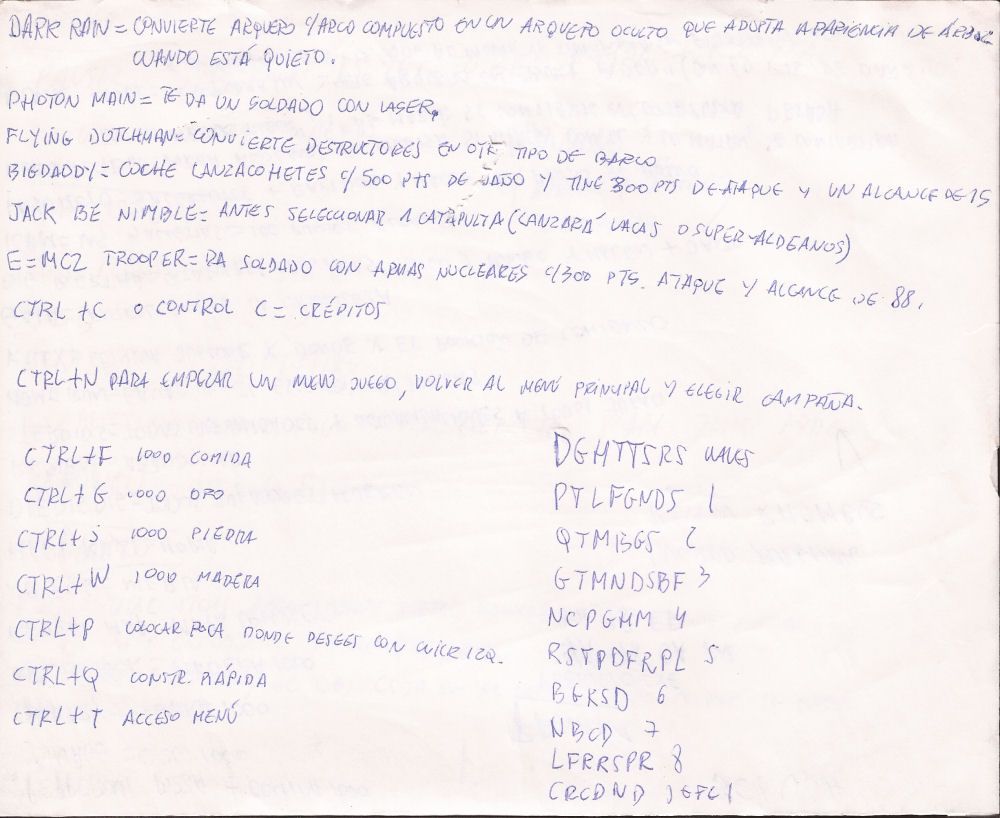 DARK RAIN = CONVIERTE ARQUERO C/ARCO COMPUESTO EN UN ARQUERO OCULTO QUE ADOPTA APARIENCIA DE ÁRBOL
CUANDO ESTÁ QUIETO.
PHOTON MAIN = TE DA UN SOLDADO CON LASER.
FLYING DUTCHMAN = CONVIERTE DESTRUCTORES EN OTR TIPO DE BARCO
BIGDADDY = COCHE LANZACOHETES C/500 PTS DE DAÑO Y TINE 300 PTS DE ATAQUE Y UN ALCANCE DE 15
JACK BE NIMBLE = ANTES SELECCIONAR 1 CATAPULTA (LANZARÁ VACAS O SUPER-ALDEANOS)
E=MC2 TROOPER = DA SOLDADO CON ARMAS NUCLEARES C/300 PTS. ATAQUE Y ALCANCE DE 88.
CTRL + C O CONTROL C = CRÉDITOS
CTRL+N PARA EMPEZAR UN NUEVO JUEGO, VOLVER AL MENÚ PRINCIPAL Y ELEGIR CAMPAÑA.
CTRL+F 1000 COMIDA
CTRL+G 1000 ORO
CTRL+S 1000 PIEDRA
CTRL+W 1000 MADERA
CTRL+P COLOCAR ROCA DONDE DESEES CON CLICK IZQ.
CTRL+Q CONSTR. RÁPIDA
CTRL+T ACCESO MENÚ
DGHTTSRS
PTLFGNDS 1
QTMBGS 2
GTMNDSBF 3
NCPGHM 4
RSTPDFRPL 5
BGKSD 6
NBCD 7
LFRRSPR 8
CRCDND